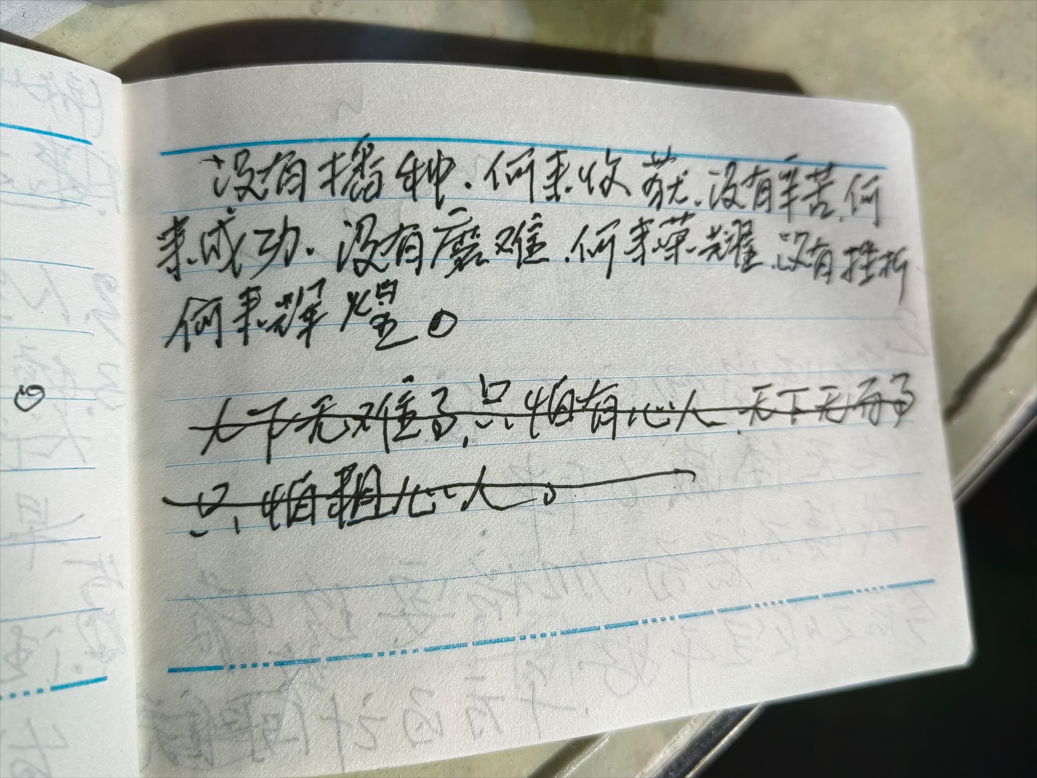 没有播种.何来收获.没有辛苦.何
来成功.没有磨难.何来荣耀.没有挫折
何来辉煌。
天下无难子,只怕有心人.天下无而子
只怕粗心人。